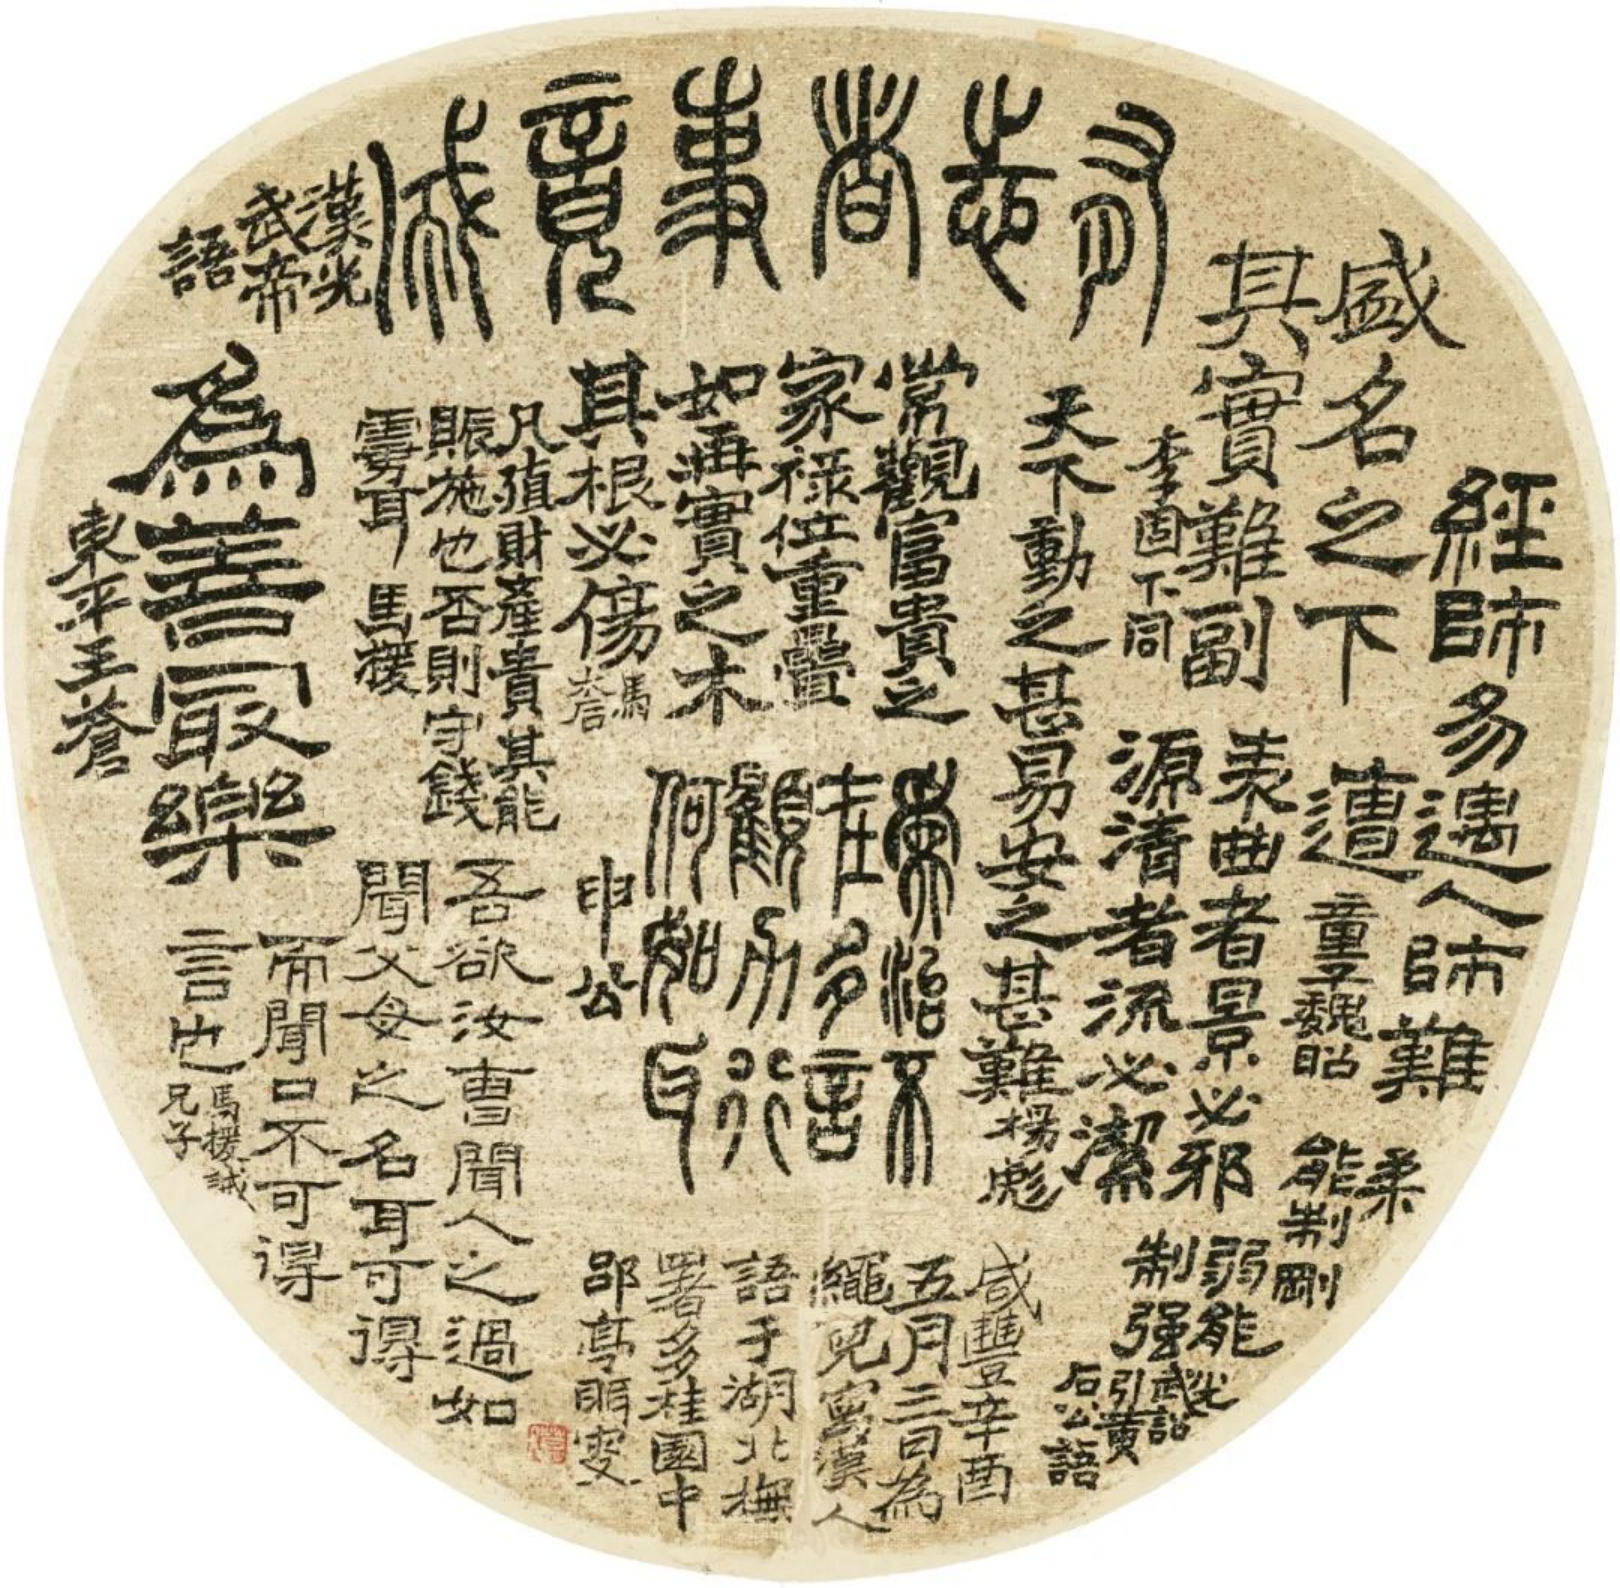 有志者事竟成
漢光
武帝
語
經師易遇人師難
遭
童子魏昭
盛名之下
其實難副
李固下同
表曲者景必邪
源清者流必潔
柔
能制剛
弱能
制强
光
武詔
引黃
石公語
天下動之甚易安之甚難
楊彪
常觀富貴之
家祿位重疊
如再實之木
其根必傷
馬
為治不
在多言
顧力行
何如耳
申公
凡殖財產貴其能
賑施也否則守錢
虜耳 馬援
吾欲汝曹聞人之過如
聞父母之名耳可得
而聞口不可得
言也
馬援誡
兄子
為善最樂
東平王蒼
咸豐辛酉
五月三日為
繩兒寫漢人
語于湖北撫
署多桂園中
郘亭眲叟